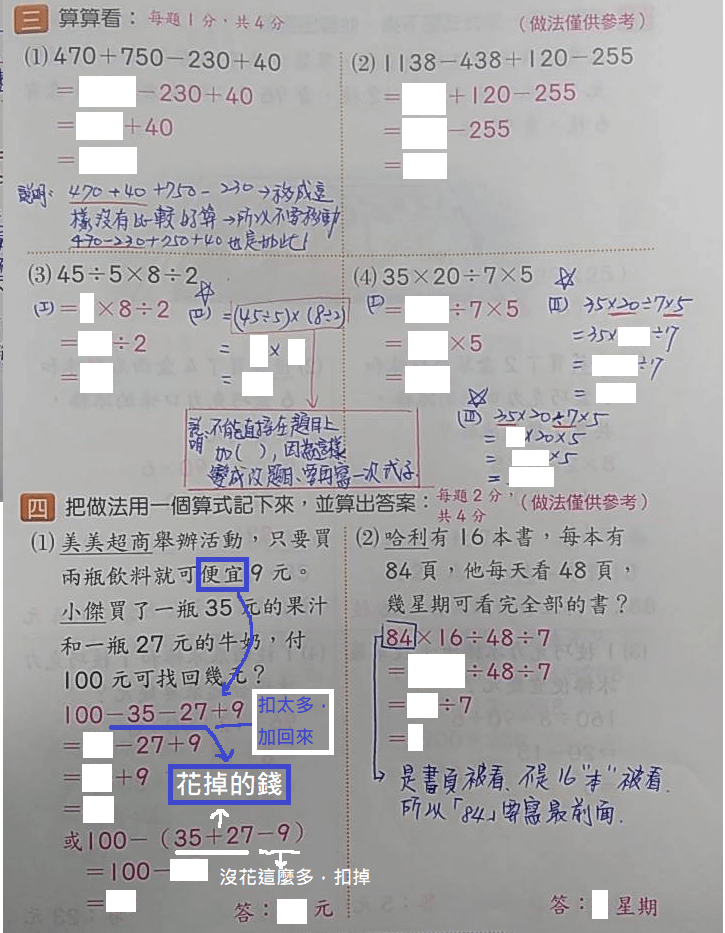 三 算算看：每題1分，共4分 （做法僅供參考）
(1) 470+750−230+40
= −230+40
= +40
=
說明： 470+40+750−230→移成這
樣沒有比較好算→所以不需移動
470−230+750+40也是如此！
(2) 1138−438+120−255
= +120−255
= −255
=
(3) 45÷5×8÷2
(I) = ×8÷2
= ÷2
=
☆
(II) =(45÷5)×(8÷2)
= ×
=
說明、不能直接在題目上
加( )，因為這樣
變成改題目、要再寫一次式子.
(4) 35×20÷7×5
(I) = ÷7×5
= ×5
=
☆
(II) 35×20÷7×5
=35× ÷7
= ÷7
=
☆
(III) 35×20÷7×5
= ×20×5
= ×5
=
四 把做法用一個算式記下來，並算出答案：每題2分，共4分 （做法僅供參考）
(1) 美美超商舉辦活動，只要買
兩瓶飲料就可便宜9元。
小傑買了一瓶35元的果汁
和一瓶27元的牛奶，付
100元可找回幾元？
100−35−27+9
= −27+9
= +9
=
扣太多．
加回來
花掉的錢
或100−（35+27−9）
=100−
=
沒花這麼多．扣掉
答： 元
(2) 哈利有16本書，每本有
84頁，他每天看48頁，
幾星期可看完全部的書？
84×16÷48÷7
= ÷48÷7
= ÷7
=
是書頁被看、不是16"本"被看.
所以「84」要寫最前面.
答： 星期